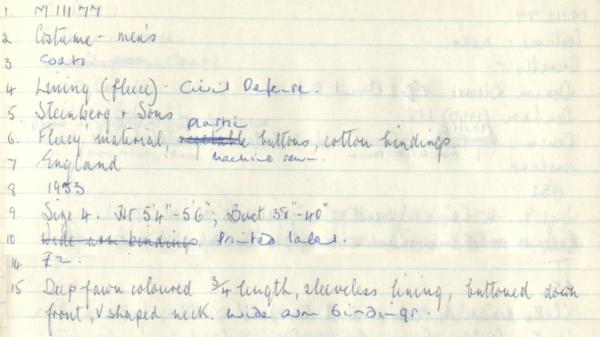 1. M 111 77
2 Costume - men's
3 Coats
4 Lining (fleece) - Civil Defense.
5 Steinberg + Sons
plastic
6. Fleecy material, vegetable buttons, cotton bindings.
machine sewn.
7 England
8 1953
9 Size 4. Ht 5'4"-5'6"; Bust 38"-40"
10 Wide arm bindings. Printed label.
14 F2.
15 Deep fawn coloured 3/4 length, sleeveless lining, buttoned down
front, V shaped neck. Wide arm bindings.